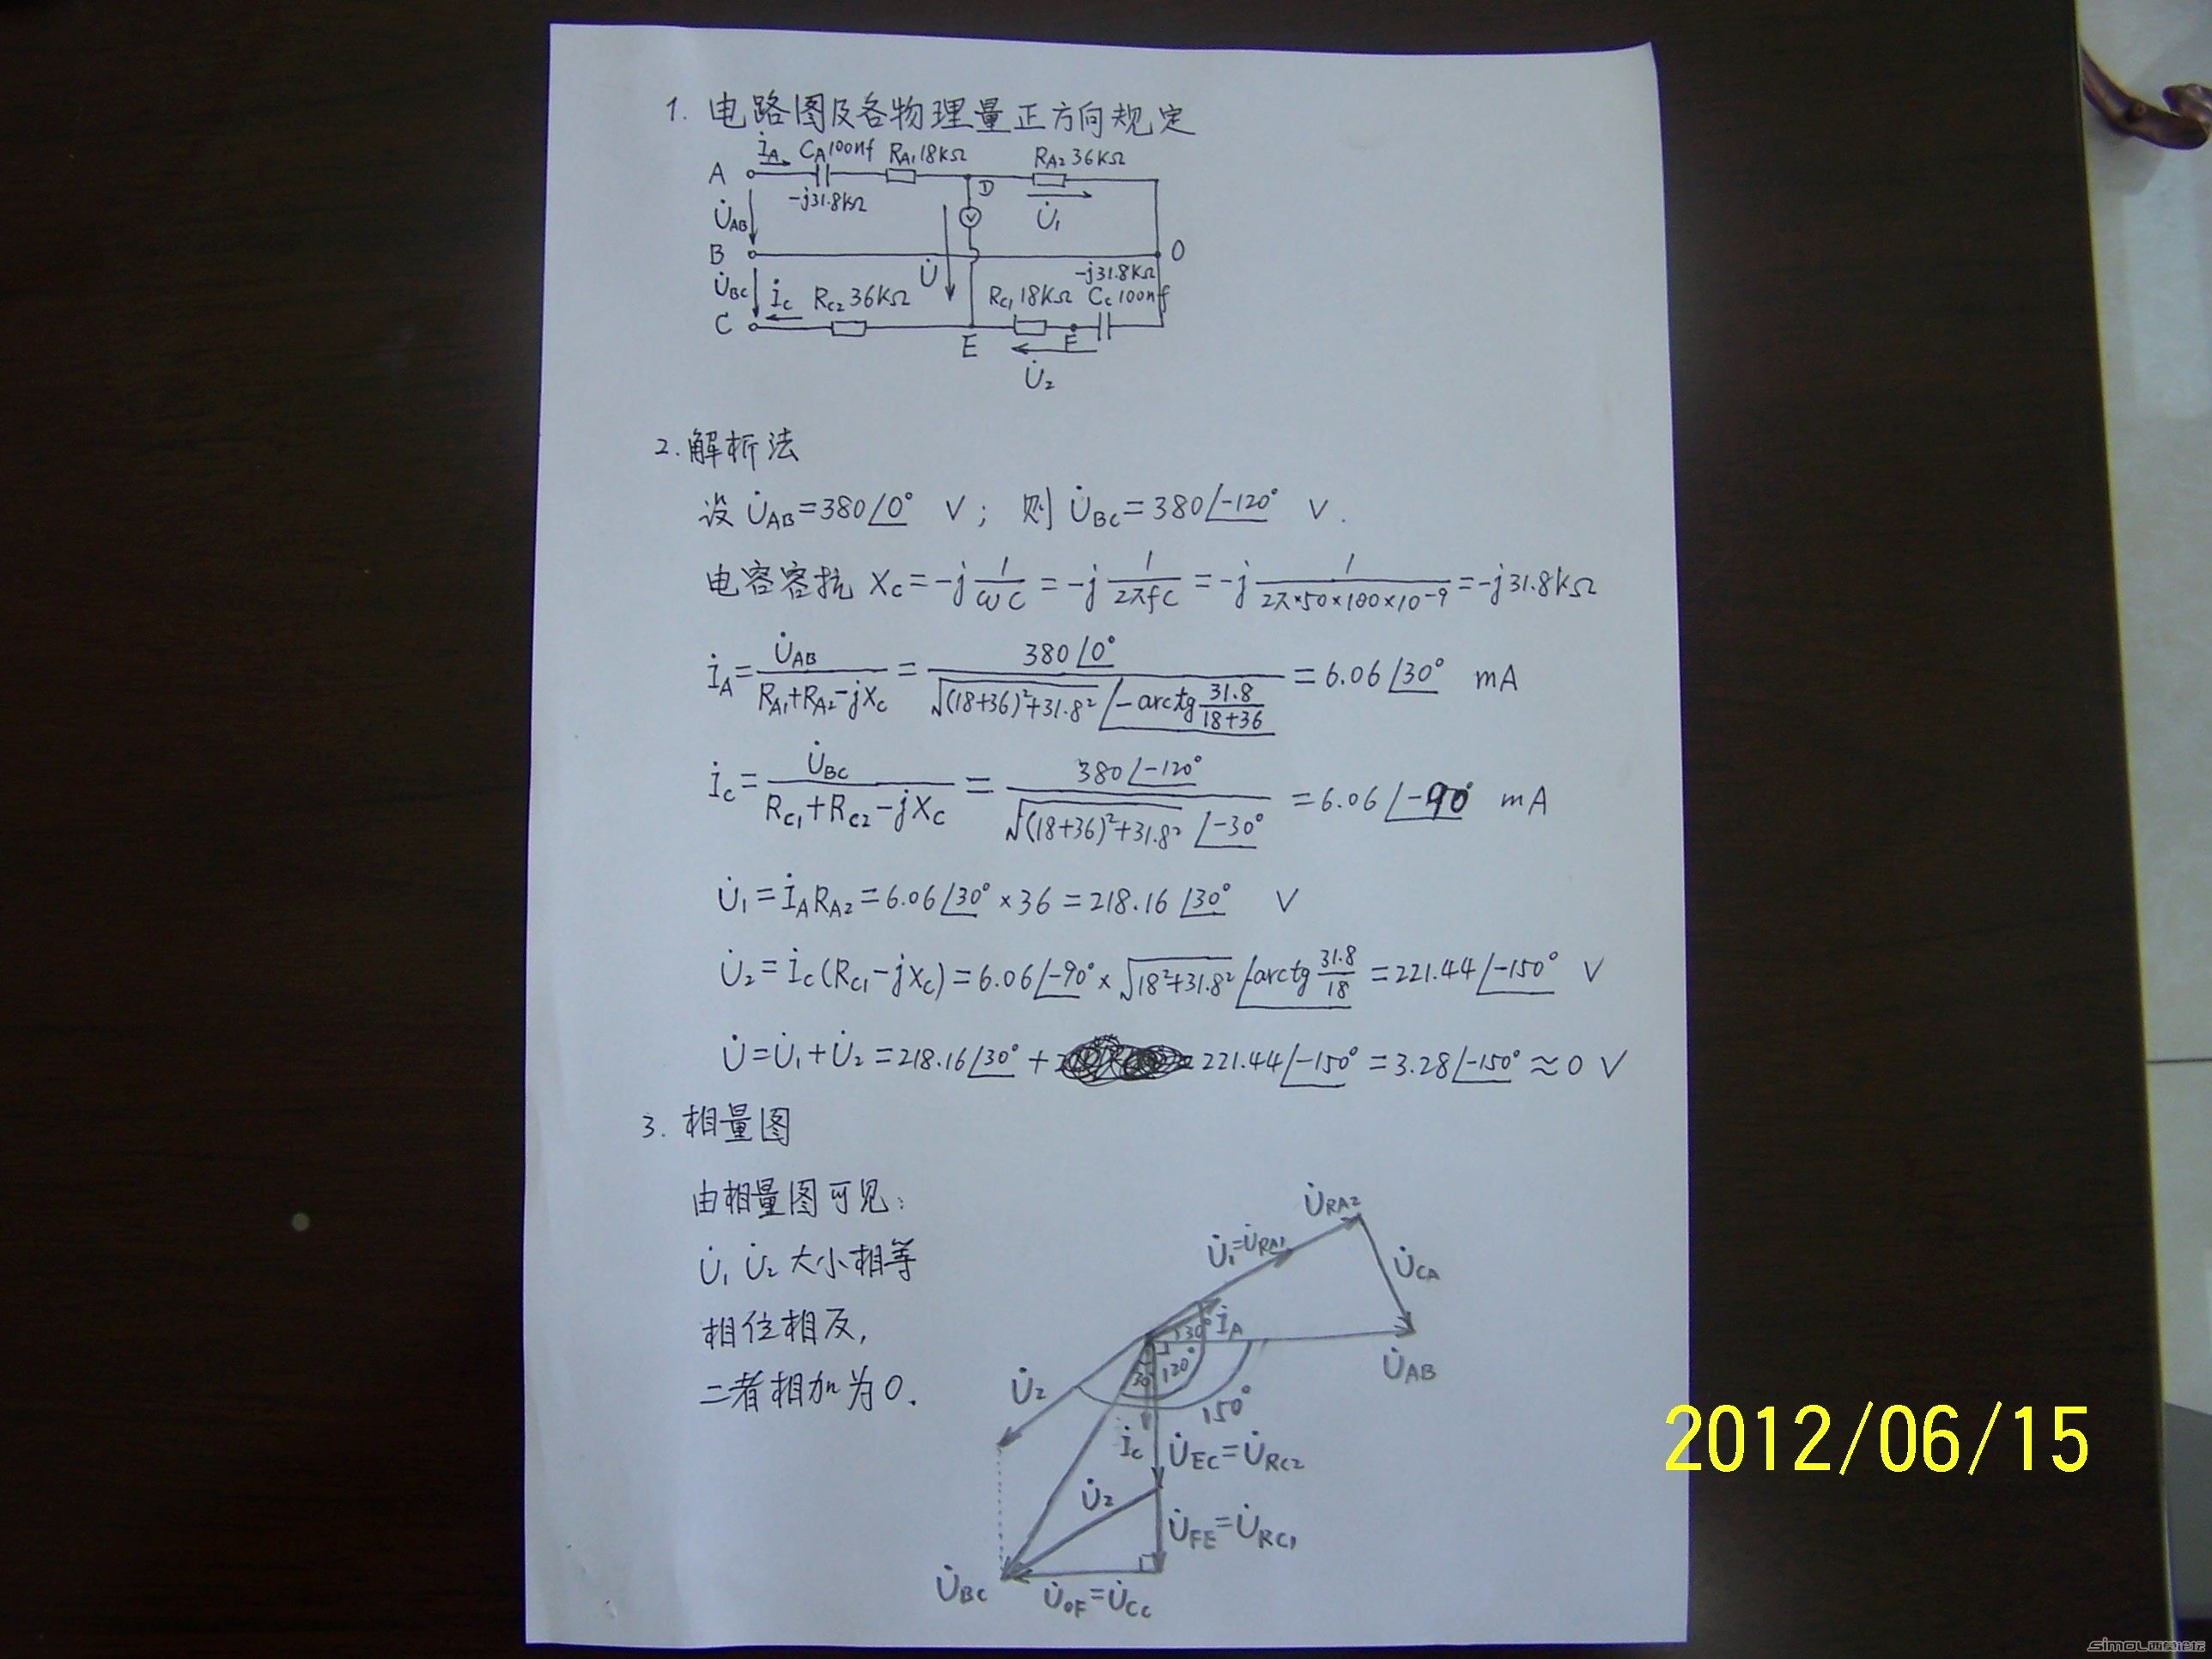 1. 电路图及各物理量正方向规定
İA CA 100nf RA1 18KΩ RA2 36KΩ
A D
-j31.8KΩ
U̇AB V U̇1
B U̇ O
-j31.8KΩ
U̇BC İC RC2 36KΩ RC1 18KΩ CC 100nf
C E F
U̇2
2. 解析法
设 U̇AB=380∠0° V; 则 U̇BC=380∠-120° V.
电容容抗 XC=-j 1/ωC = -j 1/2πfC = -j 1/2π×50×100×10-9 = -j31.8kΩ
İA = U̇AB/RA1+RA2-jXC = 380∠0°/√(18+36)²+31.8² ∠-arctg 31.8/18+36 = 6.06∠30° mA
İC = U̇BC/RC1+RC2-jXC = 380∠-120°/√(18+36)²+31.8² ∠-30° = 6.06∠-90° mA
U̇1=İARA2=6.06∠30°×36=218.16∠30° V
U̇2=İC(RC1-jXC)=6.06∠-90°×√18²+31.8² ∠arctg 31.8/18 =221.44∠-150° V
U̇=U̇1+U̇2=218.16∠30°+221.44∠-150°=3.28∠-150°≈0 V
3. 相量图
由相量图可见:
U̇1 U̇2 大小相等
相位相反,
二者相加为0.
U̇RA2
U̇1=U̇RA1
U̇CA
30° İA
120°
30°
U̇AB
U̇2
150°
İC U̇EC=U̇RC2
U̇2
U̇FE=U̇RC1
U̇BC U̇OF=U̇CC
2012/06/15